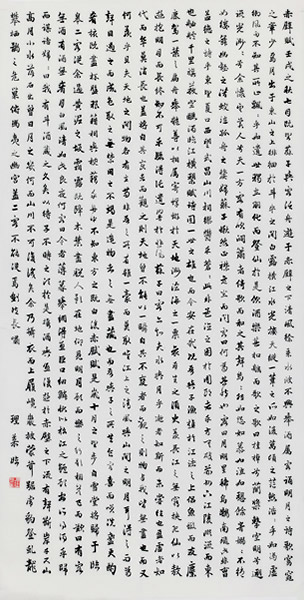 赤壁賦壬戌之秋七月既望蘇子與客泛舟遊於赤壁之下清風徐來水波不興舉酒屬客誦明月之詩歌窈窕
之章少焉月出於東山之上徘徊於斗牛之間白露橫江水光接天縱一葦之所如凌萬頃之茫然浩浩乎如馮虛
御風而不知其所止飄飄乎如遺世獨立羽化而登仙於是飲酒樂甚扣舷而歌之歌曰桂棹兮蘭槳擊空明兮遡
流光渺渺兮予懷望美人兮天一方客有吹洞簫者倚歌而和之其聲嗚嗚然如怨如慕如泣如訴餘音嫋嫋不絕
如縷舞幽壑之潛蛟泣孤舟之嫠婦蘇子愀然正襟危坐而問客曰何為其然也客曰月明星稀烏鵲南飛此非曹
孟德之詩乎西望夏口東望武昌山川相繆鬱乎蒼蒼此非孟德之困於周郎者乎方其破荊州下江陵順流而東
也舳艫千里旌旗蔽空釃酒臨江橫槊賦詩固一世之雄也而今安在哉況吾與子漁樵於江渚之上侶魚蝦而友
麋鹿駕一葉之扁舟舉匏樽以相屬寄蜉蝣於天地渺滄海之一粟哀吾生之須臾羨長江之無窮挾飛仙以敖
遊抱明月而長終知不可乎驟得託遺響於悲風蘇子曰客亦知夫水與月乎逝者如斯而未嘗往也盈虛者如
代而卒莫消長也蓋將自其變者而觀之則天地曾不能以一瞬自其不變者而觀之則物與我皆無盡也而又
何羨乎且夫天地之間物各有主苟非吾之所有雖一毫而莫取惟江上之清風與山間之明月耳得之而為聲
目遇之而成色取之無禁用之不竭是造物者之無盡藏也而吾與子之所共食客喜而笑洗盞更酌
肴核既盡杯盤狼藉相與枕藉乎舟中不知東方之既白後赤壁賦是歲十月之望步自雪堂將歸于臨
皋二客從余過黃泥之坂霜露既降木葉盡脫人影在地仰見明月顧而樂之行歌相答已而歎曰有客
無酒有酒無肴月白風清如此良夜何客曰今者薄暮舉網得魚巨口細鱗狀似松江之鱸顧安所得酒乎歸
而謀諸婦婦曰我有斗酒藏之久矣以待子不時之需於是攜酒與魚復遊於赤壁之下江流有聲斷岸千尺山
高月小水落石出曾日月之幾何而江山不可復識矣余乃攝衣而上履巉巖披蒙茸踞虎豹登虬龍
攀栖鶻之危巢俯馮夷之幽宮蓋二客不能從焉劃然長嘯